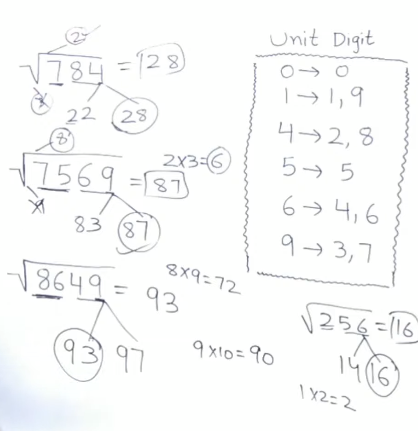 2
√784 = 28
22 28
8
2x3=6
√7569 = 87
83 87
8x9=72
√8649 = 93
93 97
9x10=90
Unit Digit
0→ 0
1→ 1,9
4→ 2, 8
5→ 5
6→ 4,6
9→ 3,7
√256 = 16
14 16
1x2=2